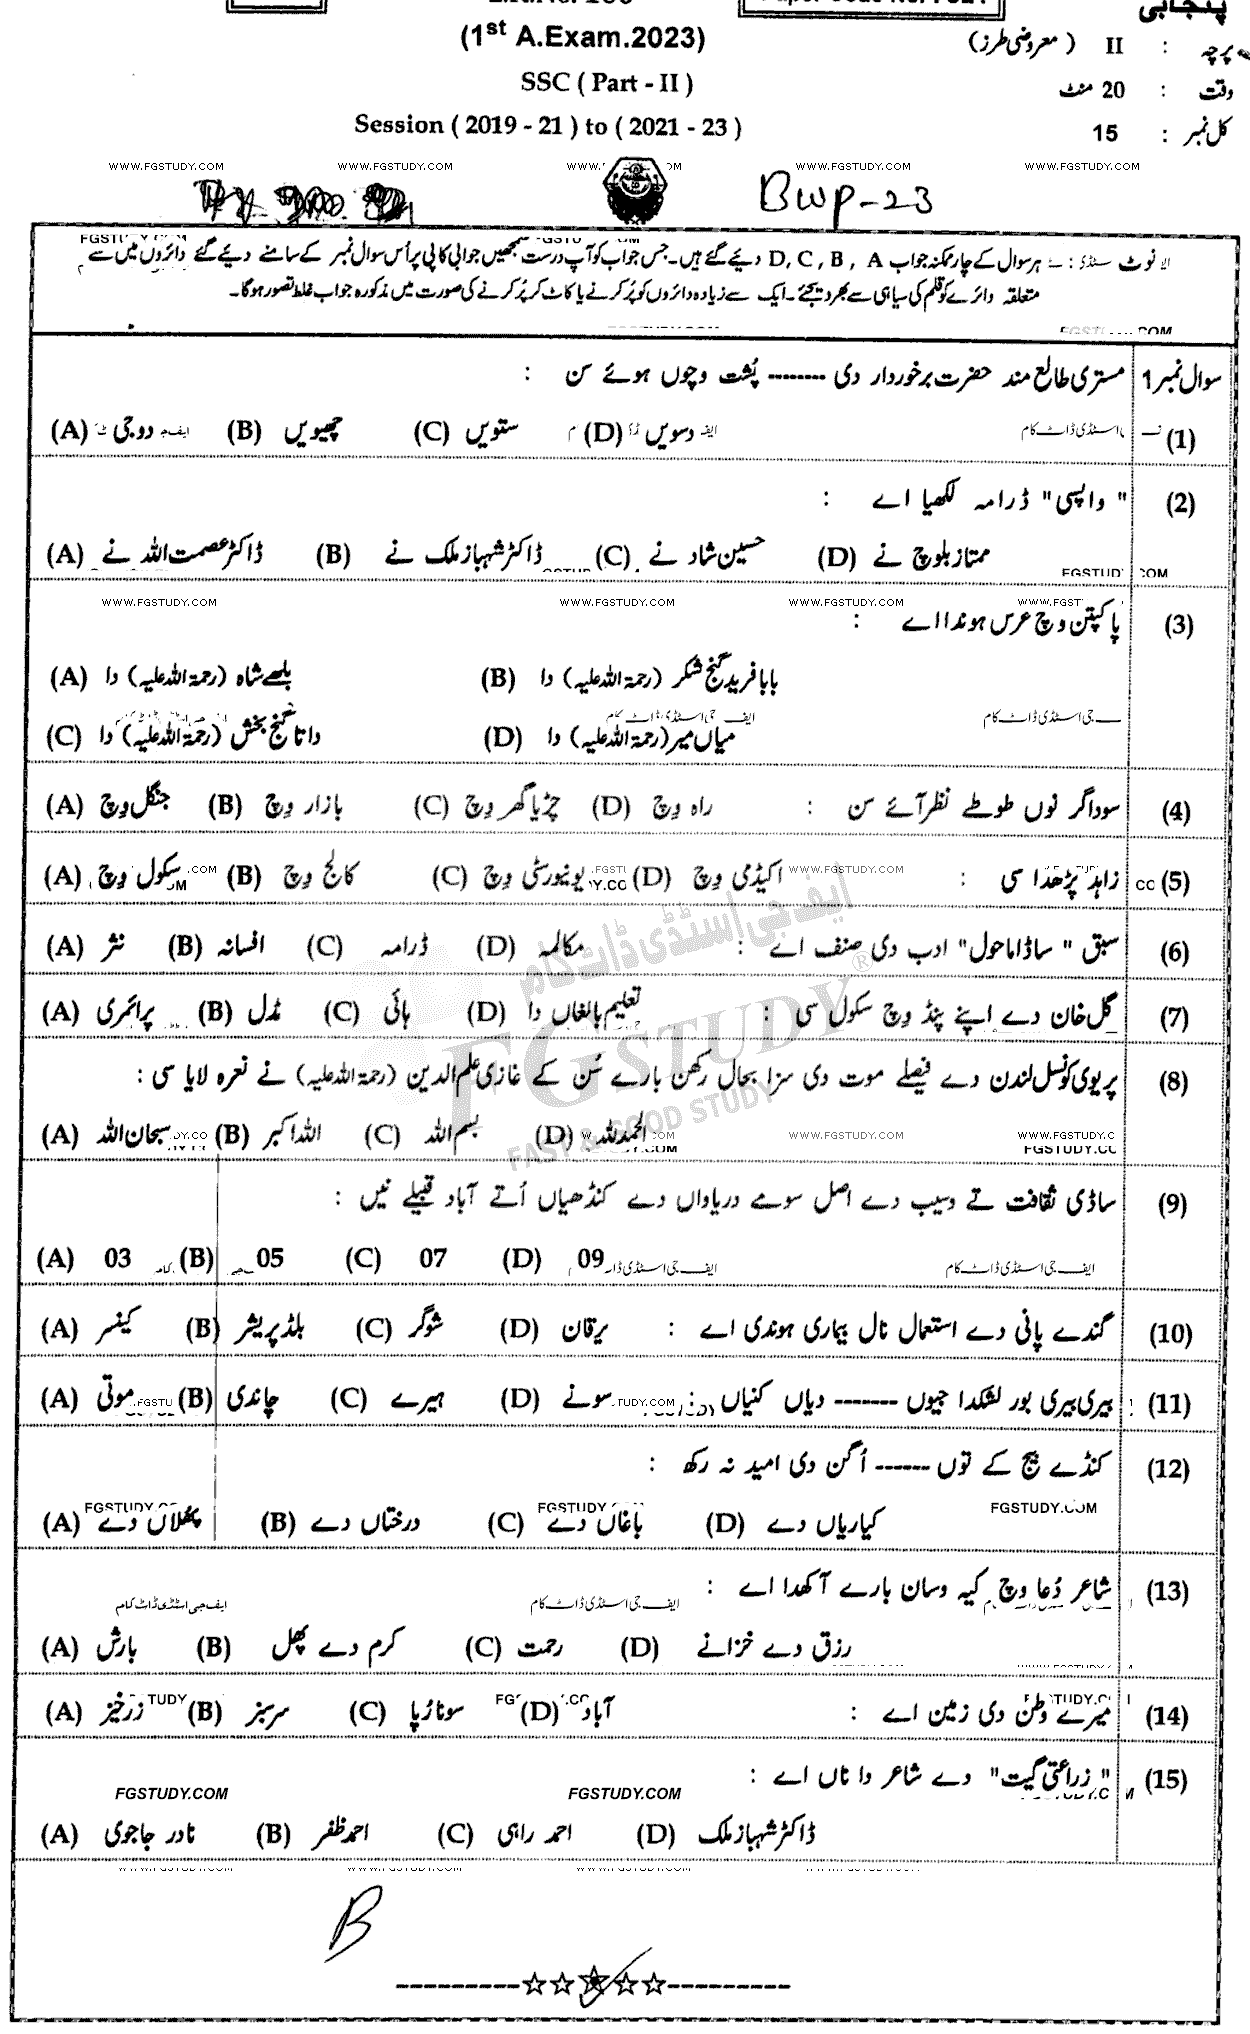 پنجابی
(1st A.Exam.2023)
پرچہ : II (معروضی طرز)
SSC ( Part - II )
وقت : 20 منٹ
Session ( 2019 - 21 ) to ( 2021 - 23 )
کل نمبر : 15
WWW.FGSTUDY.COM WWW.FGSTUDY.COM WWW.FGSTUDY.COM WWW.FGSTUDY.COM
BWP-23
نوٹ : ہر سوال کے چار ممکنہ جواب D, C, B, A دیئے گئے ہیں۔ جس جواب کو آپ درست سمجھیں جوابی کاپی پر اُس سوال نمبر کے سامنے دیئے گئے دائروں میں سے
متعلقہ دائرے کو قلم کی سیاہی سے بھر دیجئے۔ ایک سے زیادہ دائروں کو پُر کرنے یا کاٹ کر پُر کرنے کی صورت میں مذکورہ جواب غلط تصور ہوگا۔
سوال نمبر 1 مستری طالع مند حضرت برخوردار دی -------- پُشت وچوں ہوئے سن :
(1) (A) دوجی (B) چھیویں (C) ستویں (D) دسویں
(2) " واپسی" ڈرامہ لکھیا اے :
(A) ڈاکٹر عصمت اللہ نے (B) ڈاکٹر شہباز ملک نے (C) حسین شاد نے (D) ممتاز بلوچ نے
(3) پاکپتن وچ عرس ہوندا اے :
(A) بلھے شاہ (رحمۃ اللہ علیہ) دا (B) بابا فرید گنج شکر (رحمۃ اللہ علیہ) دا
(C) داتا گنج بخش (رحمۃ اللہ علیہ) دا (D) میاں میر (رحمۃ اللہ علیہ) دا
(4) سوداگر نوں طوطے نظر آئے سن : (A) جنگل وچ (B) بازار وچ (C) چڑیا گھر وچ (D) راہ وچ
(5) زاہد پڑھدا سی : (A) سکول وچ (B) کالج وچ (C) یونیورسٹی وچ (D) اکیڈمی وچ
(6) سبق " ساڈا ماحول" ادب دی صنف اے : (A) نثر (B) افسانہ (C) ڈرامہ (D) مکالمہ
(7) گل خان دے اپنے پنڈ وچ سکول سی : (A) پرائمری (B) مڈل (C) ہائی (D) تعلیم بالغاں دا
(8) پریوی کونسل لندن دے فیصلے موت دی سزا بحال رکھن بارے سُن کے غازی علم الدین (رحمۃ اللہ علیہ) نے نعرہ لایا سی :
(A) سبحان اللہ (B) اللہ اکبر (C) بسم اللہ (D) الحمد للہ
(9) ساڈی ثقافت تے وسیب دے اصل سومے دریاواں دے کنڈھیاں اُتے آباد قبیلے نیں :
(A) 03 (B) 05 (C) 07 (D) 09
(10) گندے پانی دے استعمال نال بیماری ہوندی اے : (A) کینسر (B) بلڈ پریشر (C) شوگر (D) یرقان
(11) بیری بیری بور لشکدا جیوں -------- دیاں کنیاں : (A) موتی (B) چاندی (C) ہیرے (D) سونے
(12) کنڈے بیج کے توں ------ اُگن دی امید نہ رکھ :
(A) پھلاں دے (B) درختاں دے (C) باغاں دے (D) کیاریاں دے
(13) شاعر دُعا وچ کیہ وسان بارے آکھدا اے :
(A) بارش (B) کرم دے پھل (C) رحمت (D) رزق دے خزانے
(14) میرے وطن دی زمین اے : (A) زرخیز (B) سرسبز (C) سونا رُپا (D) آباد
(15) " زراعتی گیت" دے شاعر دا ناں اے :
(A) نادر جاجوی (B) احمد ظفر (C) احمد راہی (D) ڈاکٹر شہباز ملک
FGSTUDY.COM FGSTUDY.COM
ایف جی اسٹڈی ڈاٹ کام
FGSTUDY
FAST & GOOD STUDY
B
---------☆☆☆☆☆---------